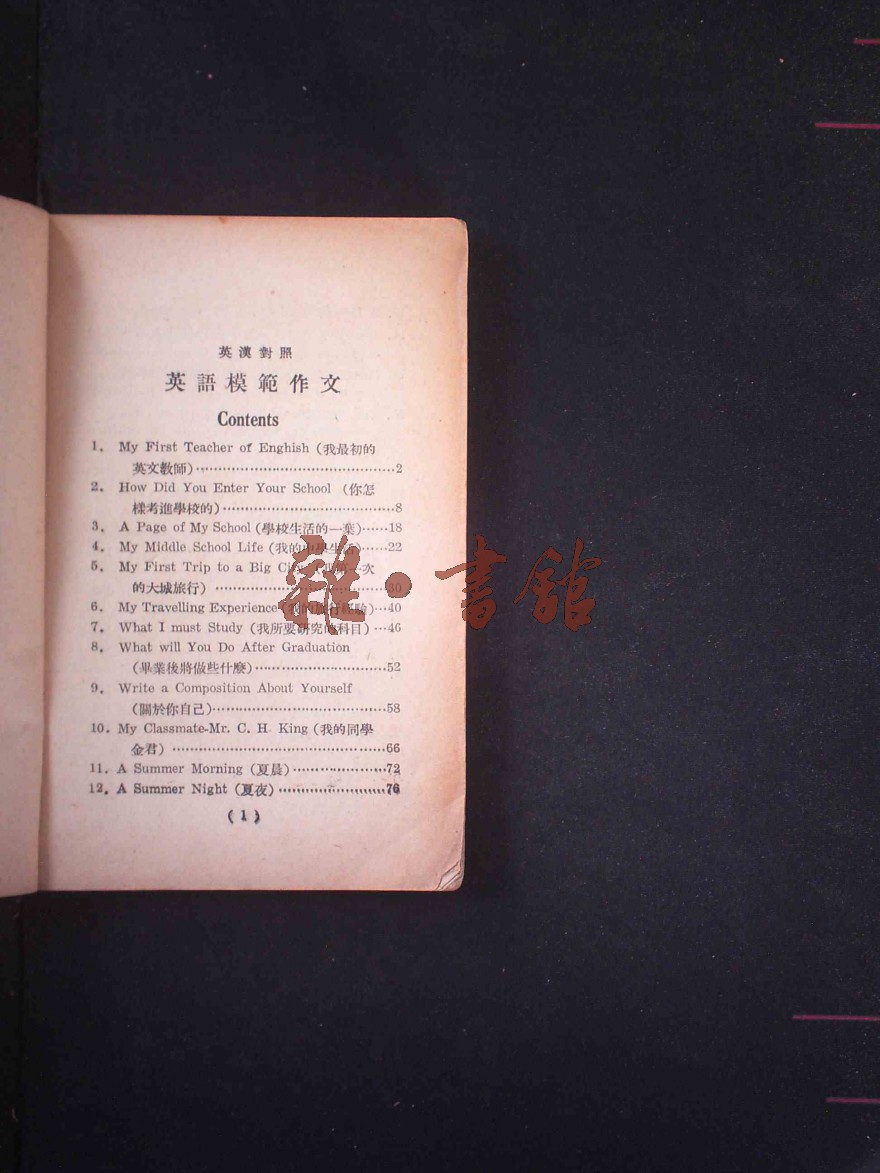 英漢對照
英語模範作文
Contents
1. My First Teacher of Enghish (我最初的
英文教師)⋯⋯⋯⋯⋯⋯⋯⋯⋯⋯2
2. How Did You Enter Your School (你怎
樣考進學校的)⋯⋯⋯⋯⋯⋯⋯⋯8
3. A Page of My School (學校生活的一葉)⋯⋯18
4. My Middle School Life (我的中學生活)⋯⋯22
5. My First Trip to a Big City (我第一次
的大城旅行) ⋯⋯⋯⋯⋯⋯⋯⋯30
6. My Travelling Experience (我的旅行經驗)⋯40
7. What I must Study (我所要研究的科目)⋯46
8. What will You Do After Graduation
(畢業後將做些什麼)⋯⋯⋯⋯⋯⋯52
9. Write a Composition About Yourself
(關於你自己)⋯⋯⋯⋯⋯⋯⋯⋯58
10. My Classmate-Mr. C. H. King (我的同學
金君) ⋯⋯⋯⋯⋯⋯⋯⋯⋯⋯66
11. A Summer Morning (夏晨)⋯⋯⋯⋯⋯72
12. A Summer Night (夏夜)⋯⋯⋯⋯⋯⋯76
(1)
雜·書館